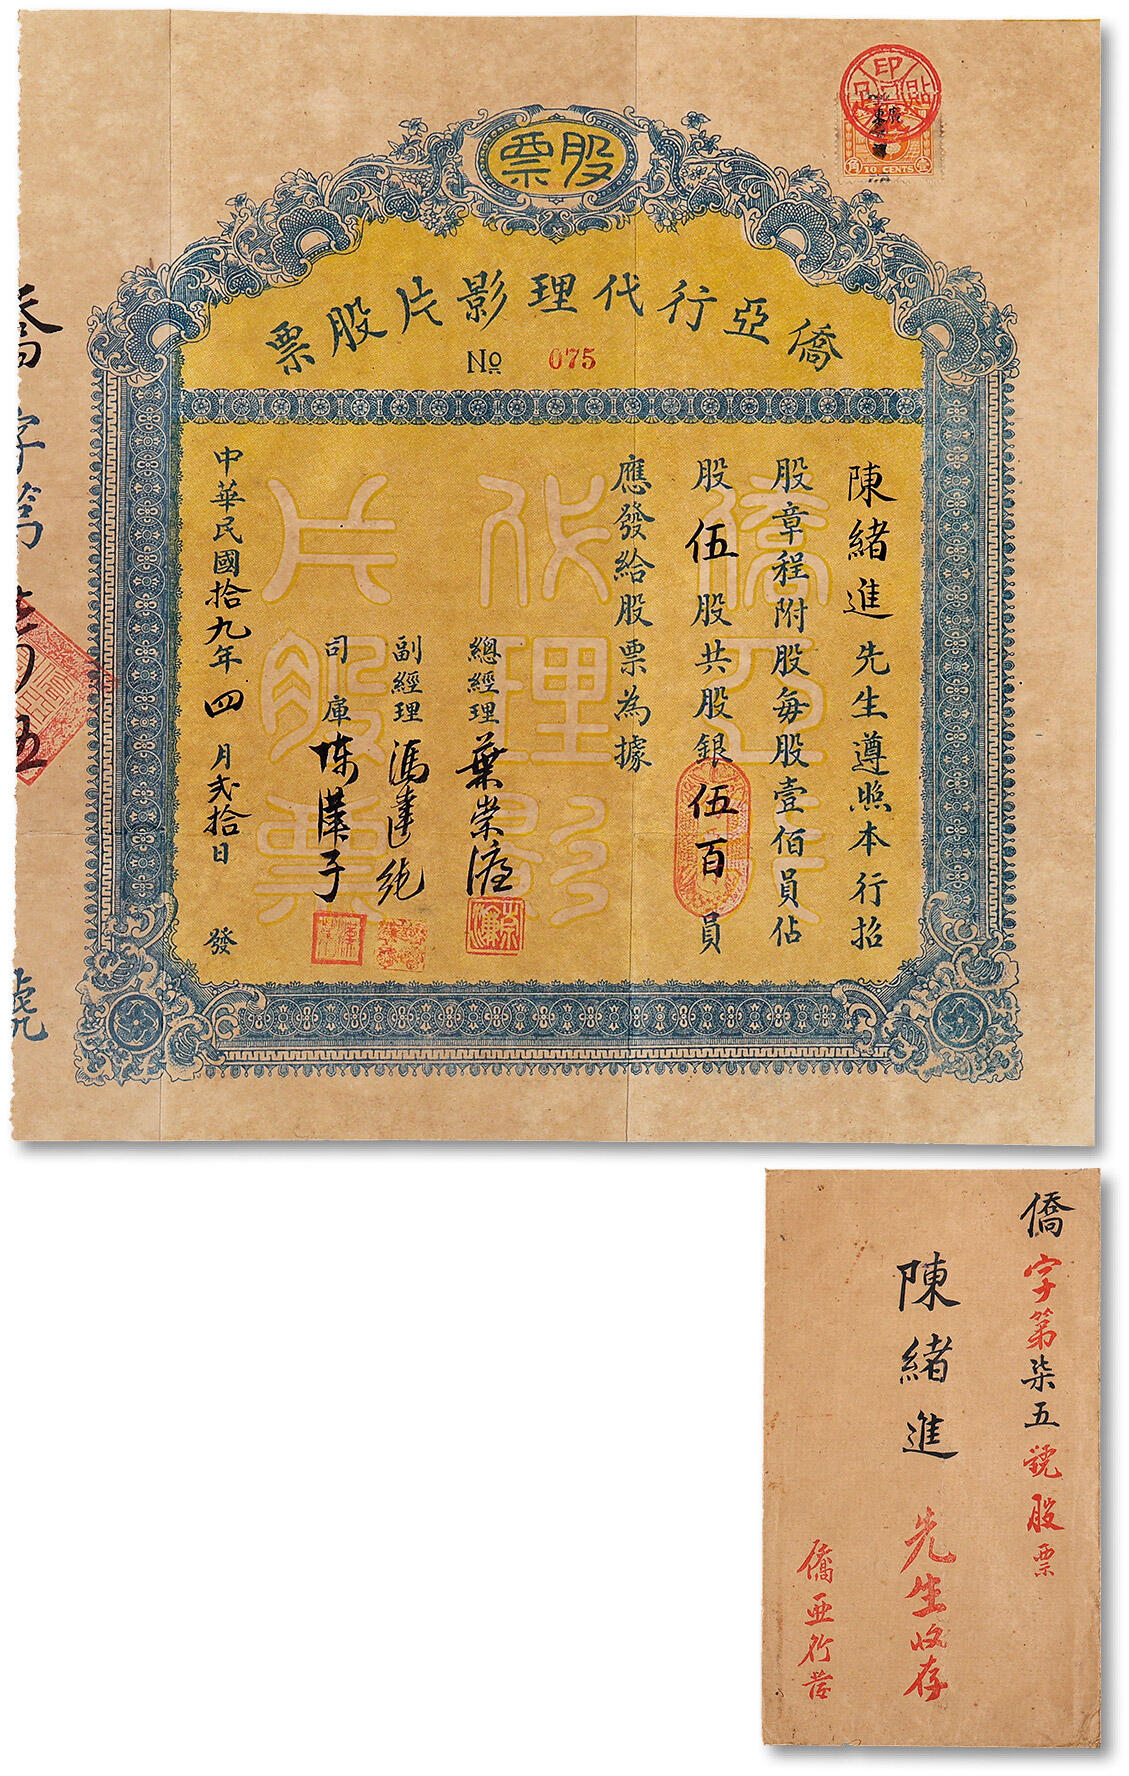 股票
僑亞行代理影片股票
No 075
陳緒進先生遵照本行招
股章程附股每股壹佰員佔
股伍股共股銀伍百員
應發給股票為據
總經理 葉崇濂
副經理 馮達純
司庫 陈漢子
中華民國拾九年四月弍拾日發
僑亞行代理影片股票
印花貼足
10 CENTS
僑字第柒五號股票
陳緒進先生收存
僑亞行發